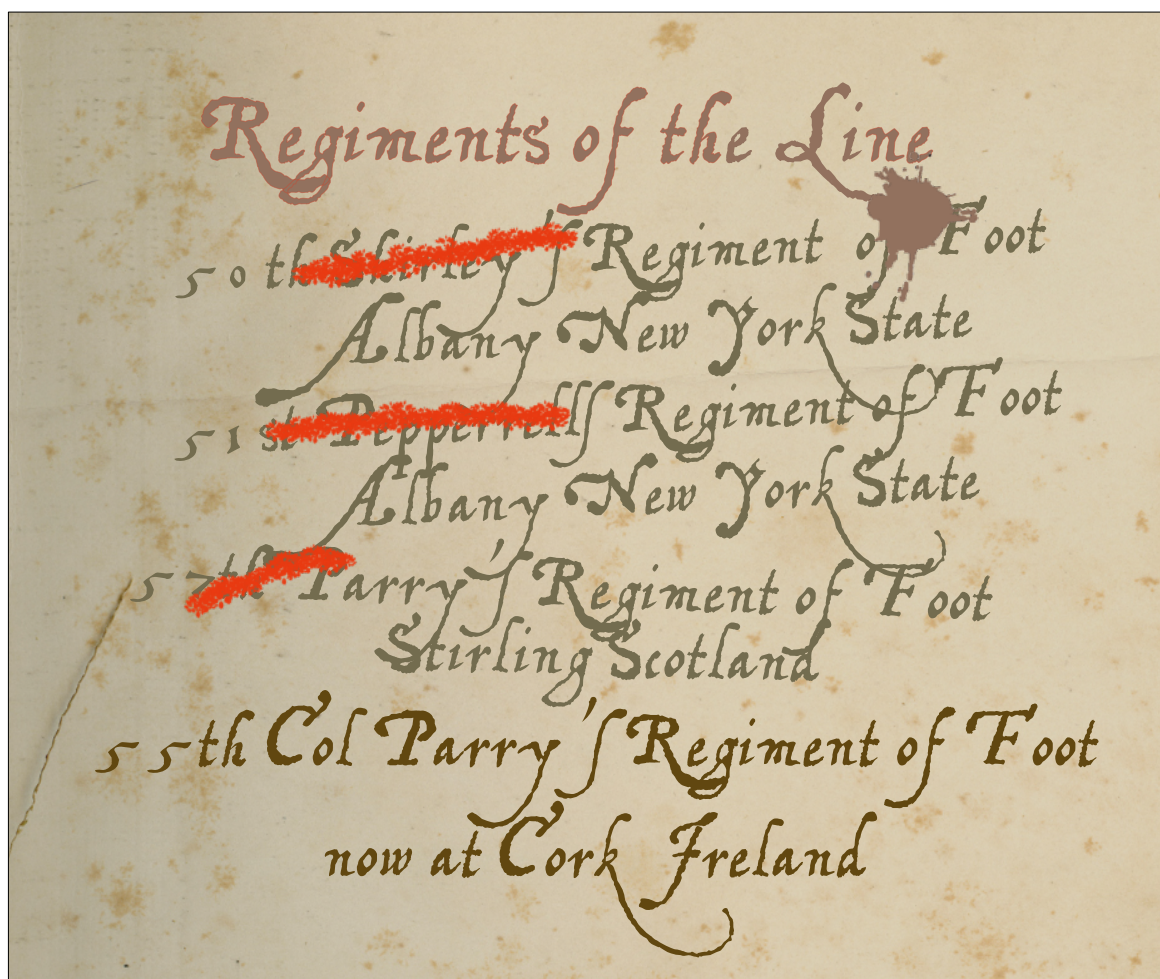 Regiments of the Line
50th Shirley's Regiment of Foot
Albany New York State
51st Pepperrells Regiment of Foot
Albany New York State
57th Parry's Regiment of Foot
Stirling Scotland
55th Col Parry's Regiment of Foot
now at Cork Ireland